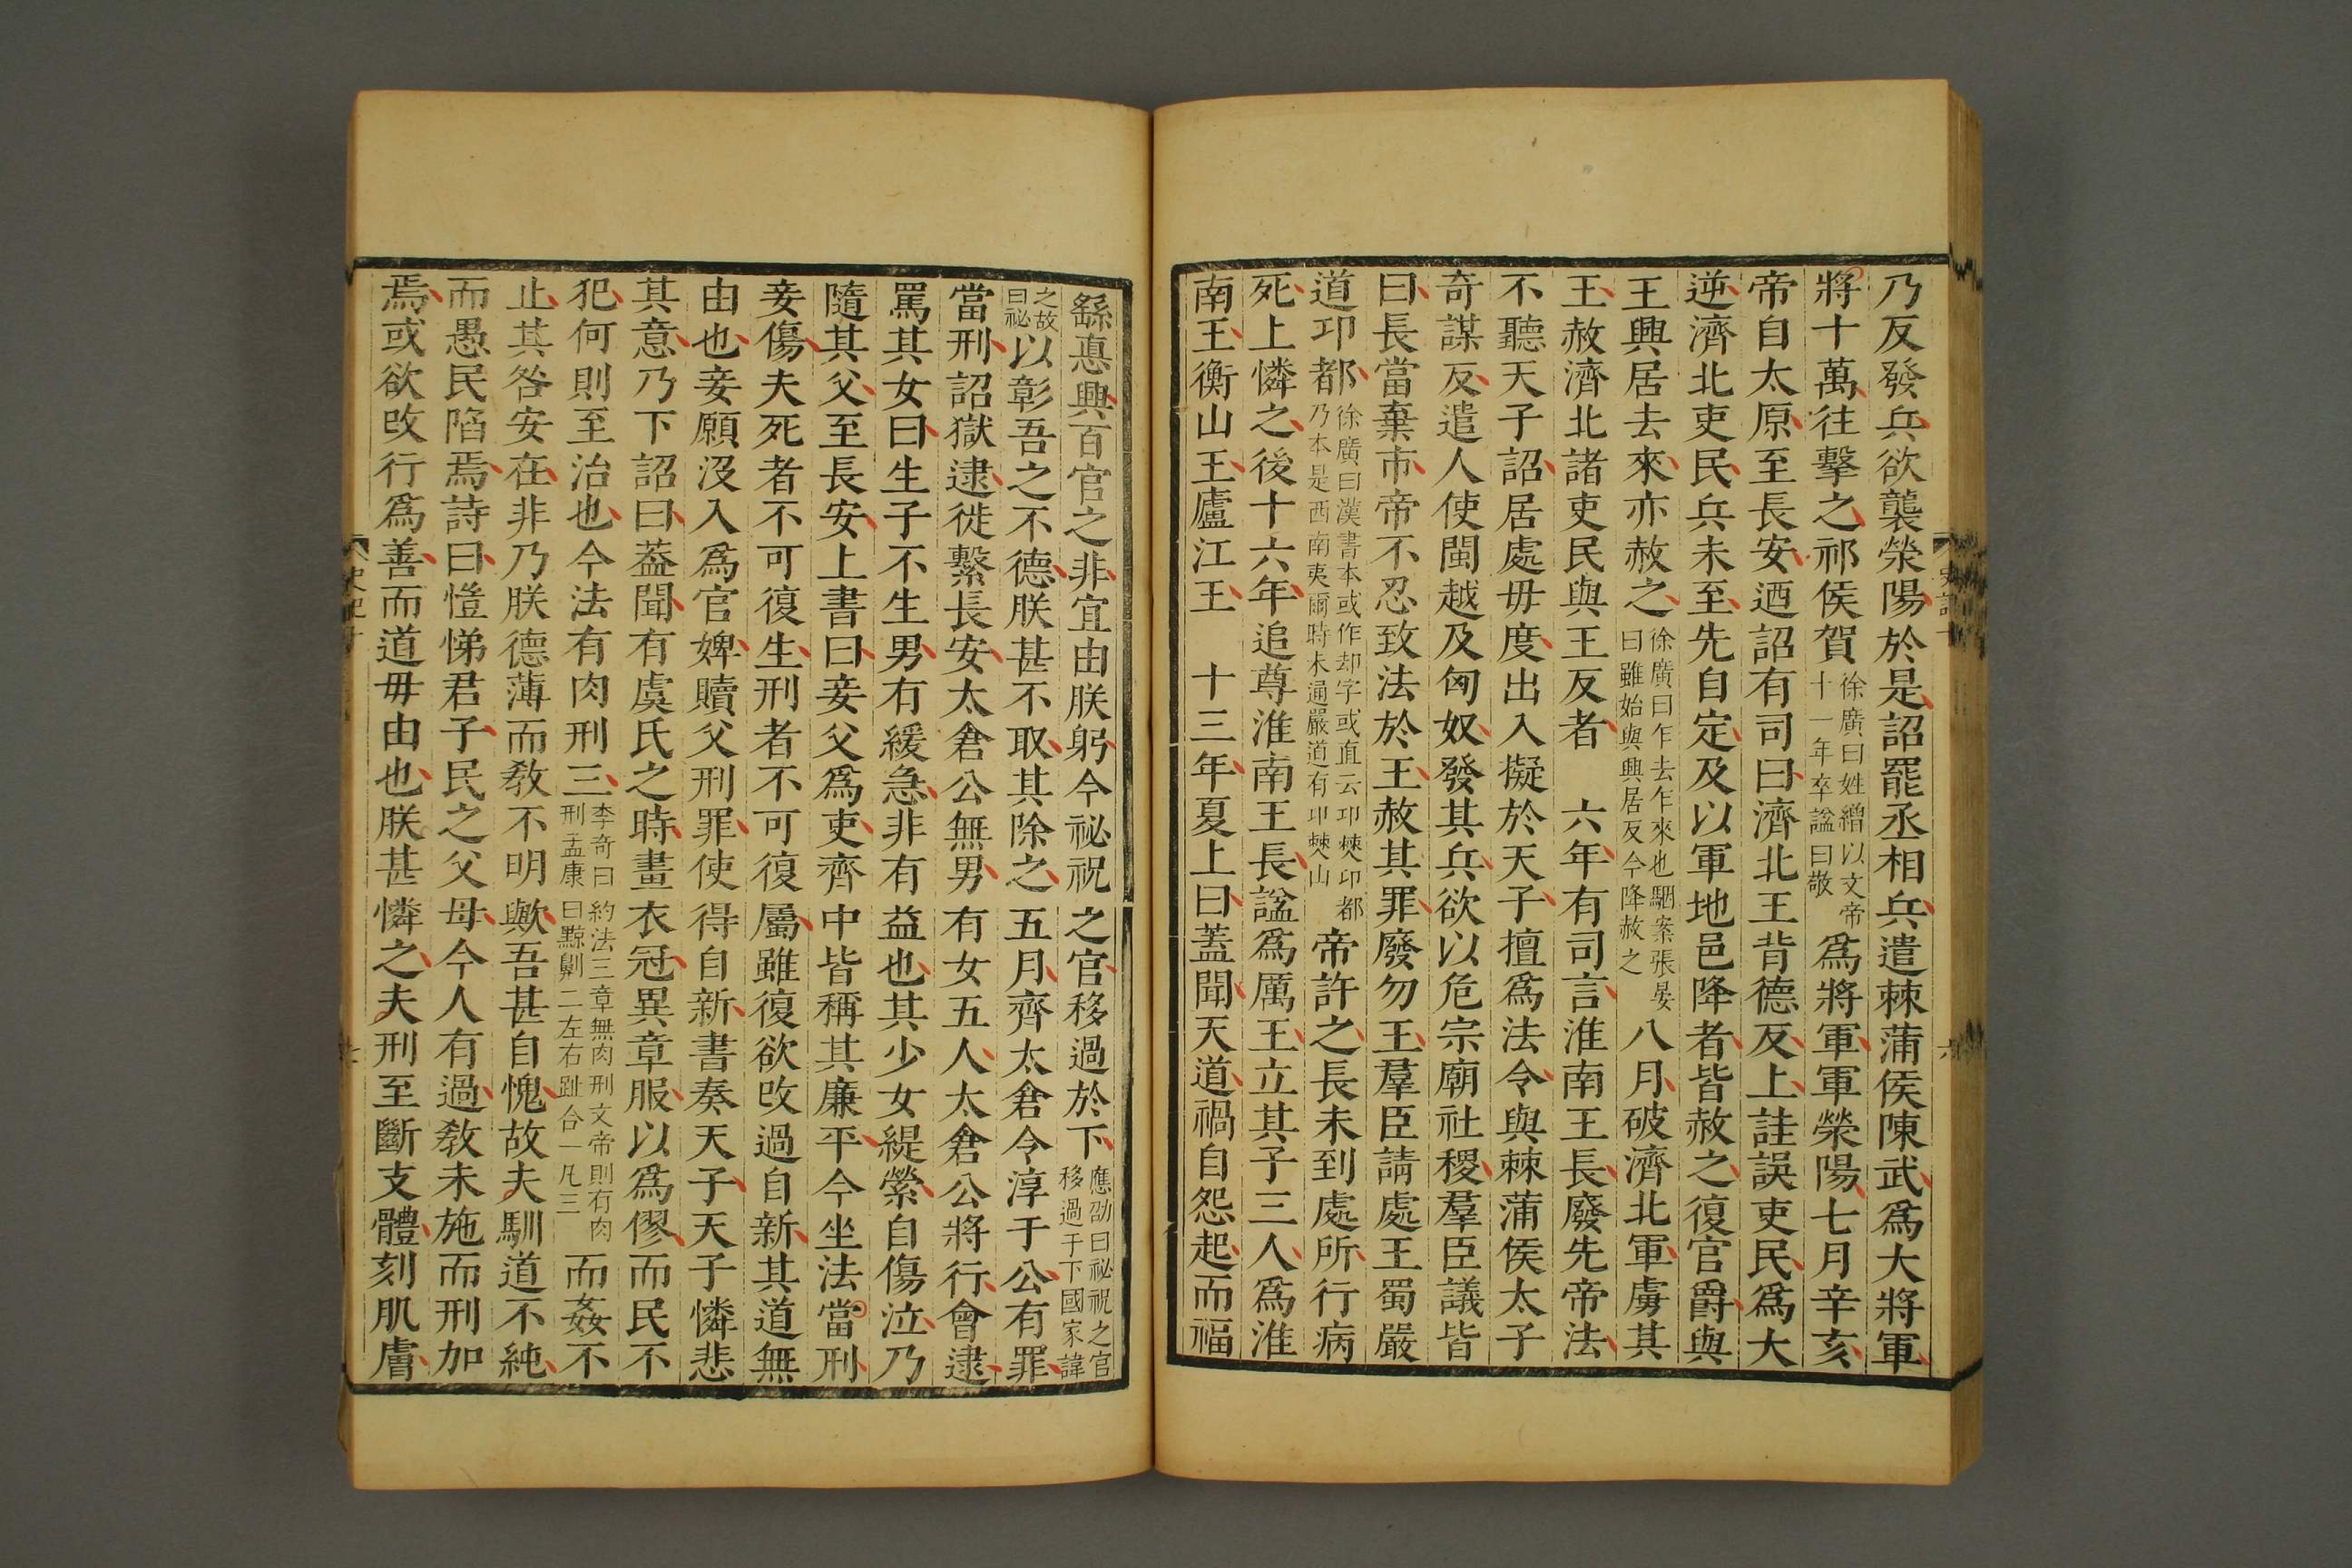 乃反發兵欲襲滎陽於是詔罷丞相兵遣棘蒲侯陳武爲大將軍
將十萬往擊之祁侯賀徐廣曰姓繒以文帝十一年卒諡曰敬爲將軍軍滎陽七月辛亥
帝自太原至長安迺詔有司曰濟北王背德反上詿誤吏民爲大
逆濟北吏民兵未至先自定及以軍地邑降者皆赦之復官爵與
王興居去來亦赦之徐廣曰乍去乍來也駰案張晏曰雖始與興居反今降赦之八月破濟北軍虜其
王赦濟北諸吏民與王反者　六年有司言淮南王長廢先帝法
不聽天子詔居處毋度出入擬於天子擅爲法令與棘蒲侯太子
奇謀反遣人使閩越及匈奴發其兵欲以危宗廟社稷羣臣議皆
曰長當棄市帝不忍致法於王赦其罪廢勿王羣臣請處王蜀嚴
道邛都徐廣曰漢書本或作却字或直云邛僰邛都乃本是西南夷爾時未通嚴道有邛僰山帝許之長未到處所行病
死上憐之後十六年追尊淮南王長諡爲厲王立其子三人爲淮
南王衡山王廬江王　十三年夏上曰蓋聞天道禍自怨起而福
繇悳興百官之非宜由朕躬今祕祝之官移過於下應劭曰祕祝之官移過于下國家諱
之故曰祕以彰吾之不德朕甚不取其除之五月齊太倉令淳于公有罪
當刑詔獄逮徙繫長安太倉公無男有女五人太倉公將行會逮
罵其女曰生子不生男有緩急非有益也其少女緹縈自傷泣乃
隨其父至長安上書曰妾父爲吏齊中皆稱其廉平今坐法當刑
妾傷夫死者不可復生刑者不可復屬雖復欲改過自新其道無
由也妾願沒入爲官婢贖父刑罪使得自新書奏天子天子憐悲
其意乃下詔曰葢聞有虞氏之時畫衣冠異章服以爲僇而民不
犯何則至治也今法有肉刑三李奇曰約法三章無肉刑文帝則有肉刑孟康曰黥劓二左右趾合一凡三而姦不
止其咎安在非乃朕德薄而敎不明歟吾甚自愧故夫馴道不純
而愚民陷焉詩曰愷悌君子民之父母今人有過敎未施而刑加
焉或欲改行爲善而道毋由也朕甚憐之夫刑至斷支體刻肌膚
史記十
史記十